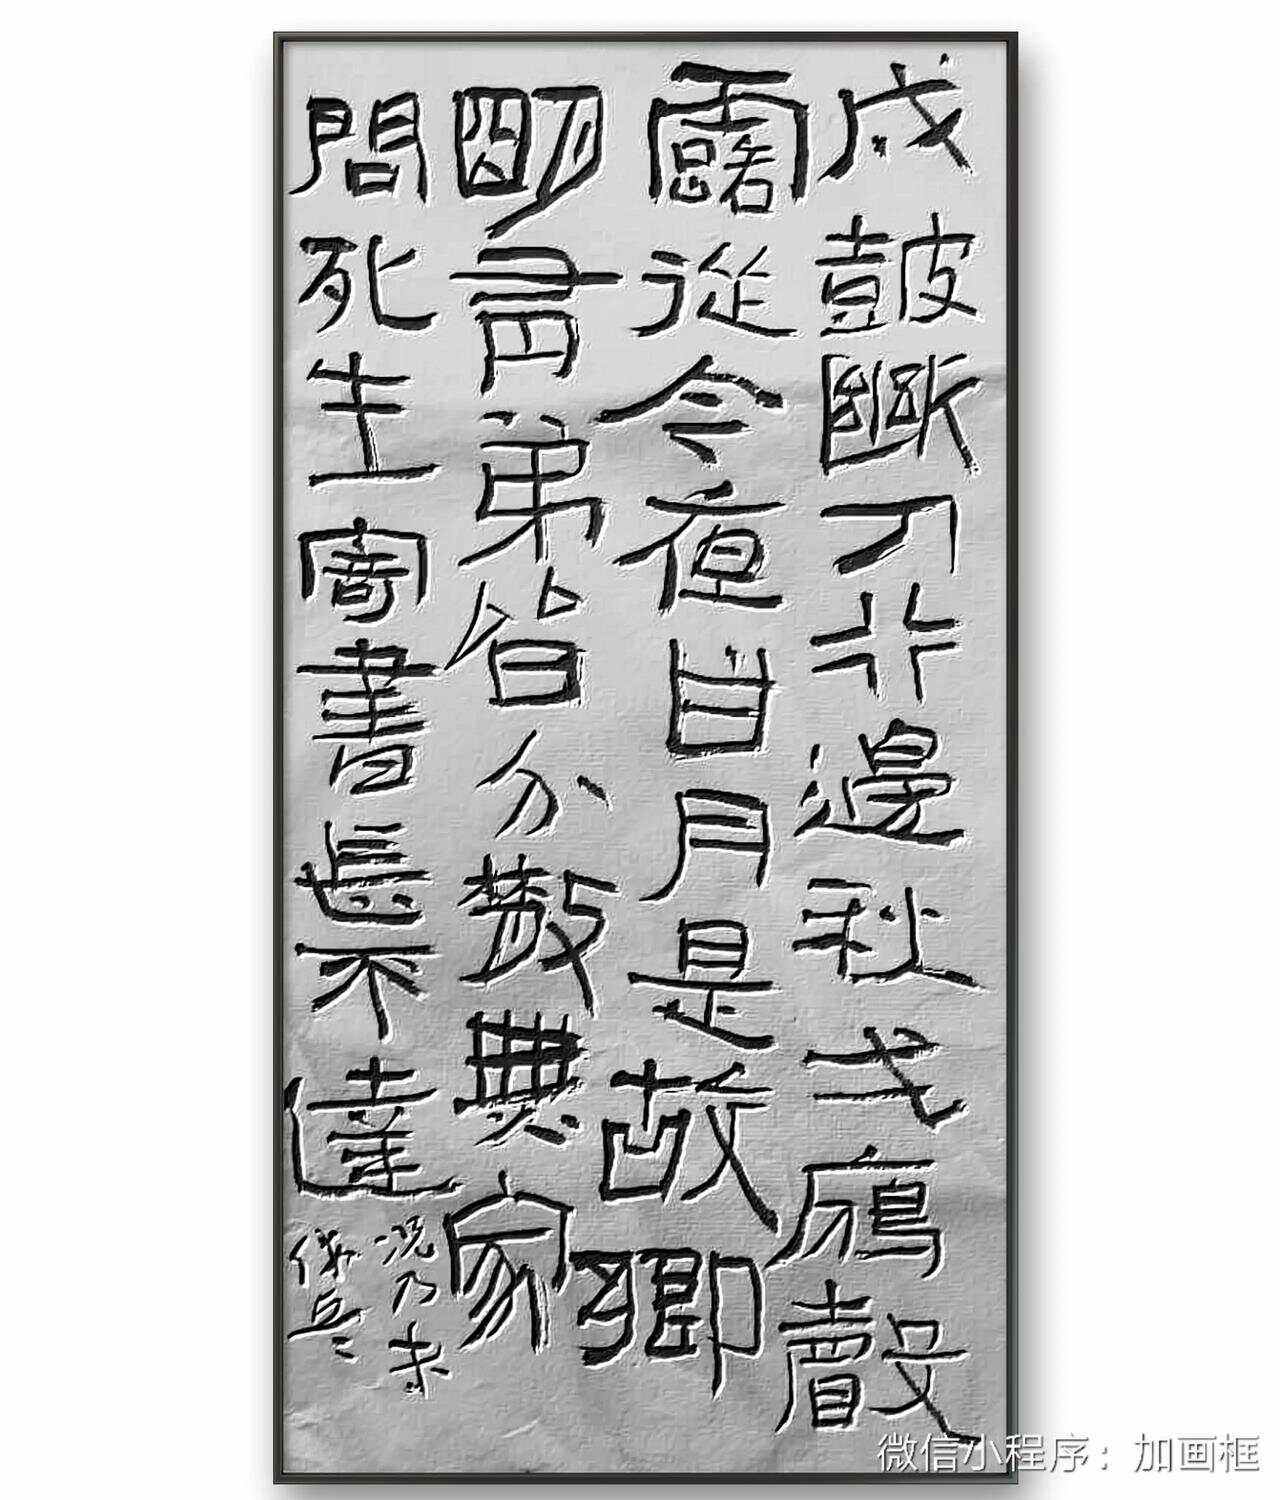 戍皷斷人行邊秋弌鴈聲
露從今夜白月是故鄉
明有弟皆分散無家
問死生寄書長不達
況乃未
休兵
微信小程序：加画框